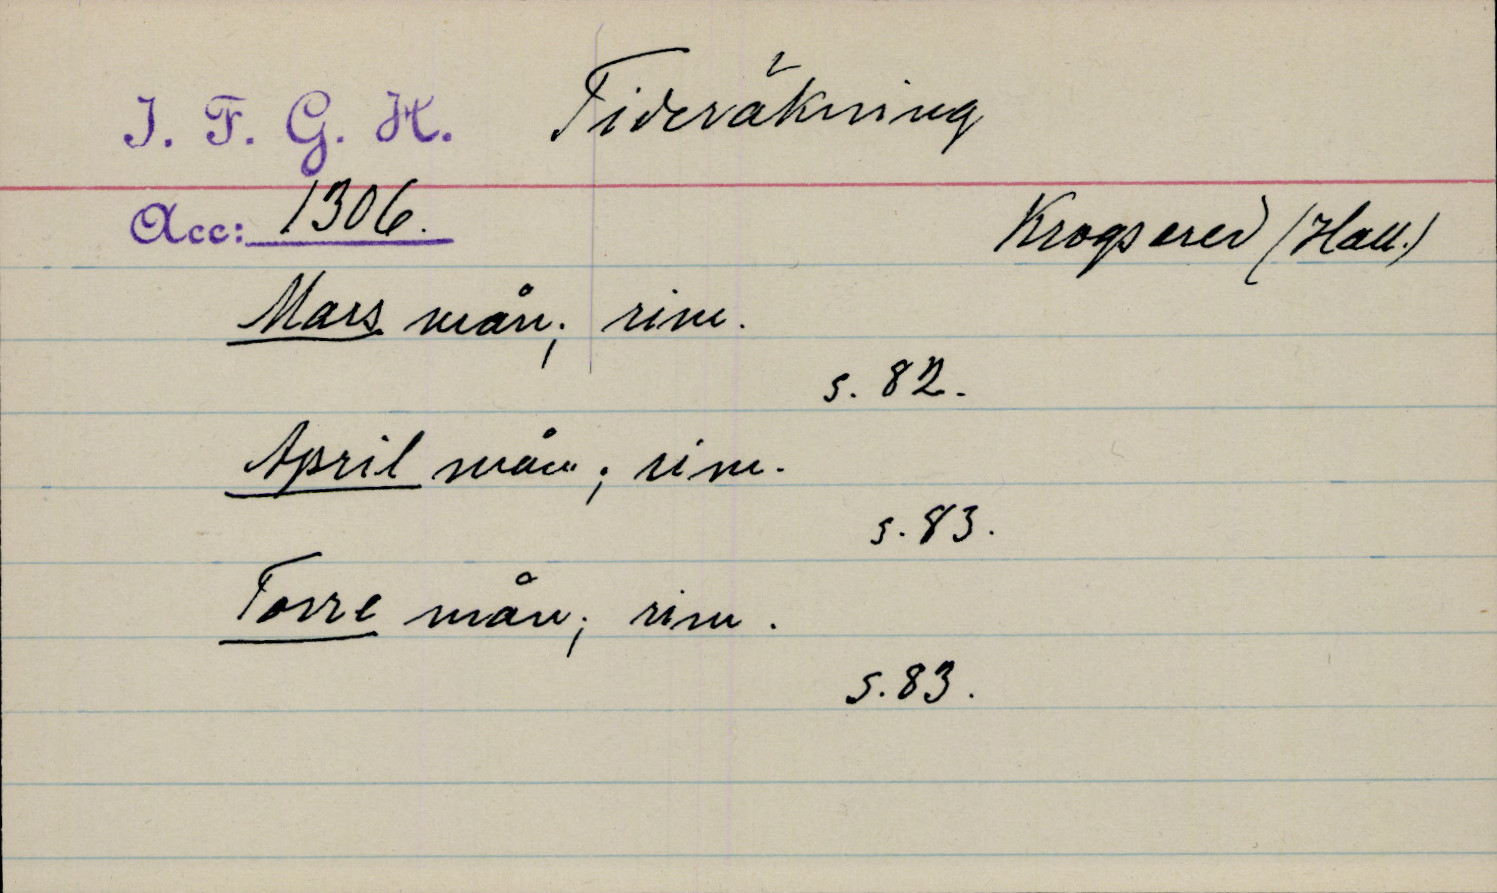 I. F. G. H. Tideräkning
Acc: 1306. Krogsered (Hall.)
Mars mån; rim.
s. 82.
April mån; rim.
s. 83.
Torre mån; rim.
s. 83.